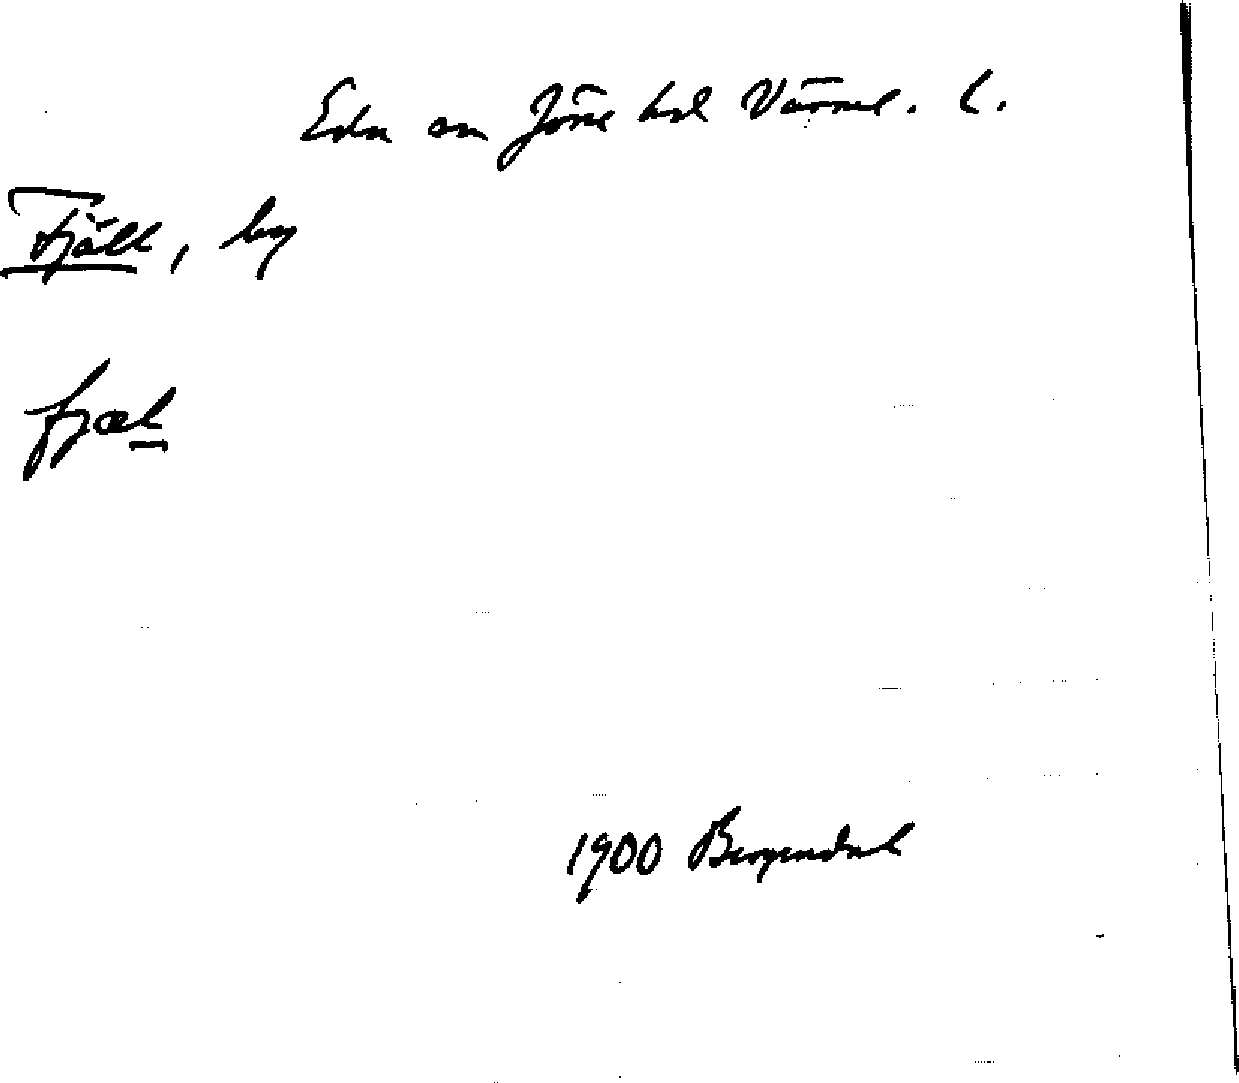 Eda sn Jösse hd Värml. l.
Fjäll, by
fjæl
1900 Bergendal